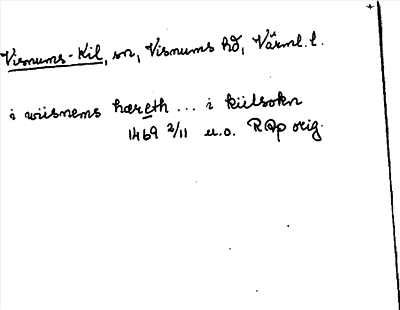 Visnums-Kil, sn, Visnums hd, Värml. l.
i wiisnems hæreth ... i kiilsokn
1469 2/11 u.o. RAp orig.